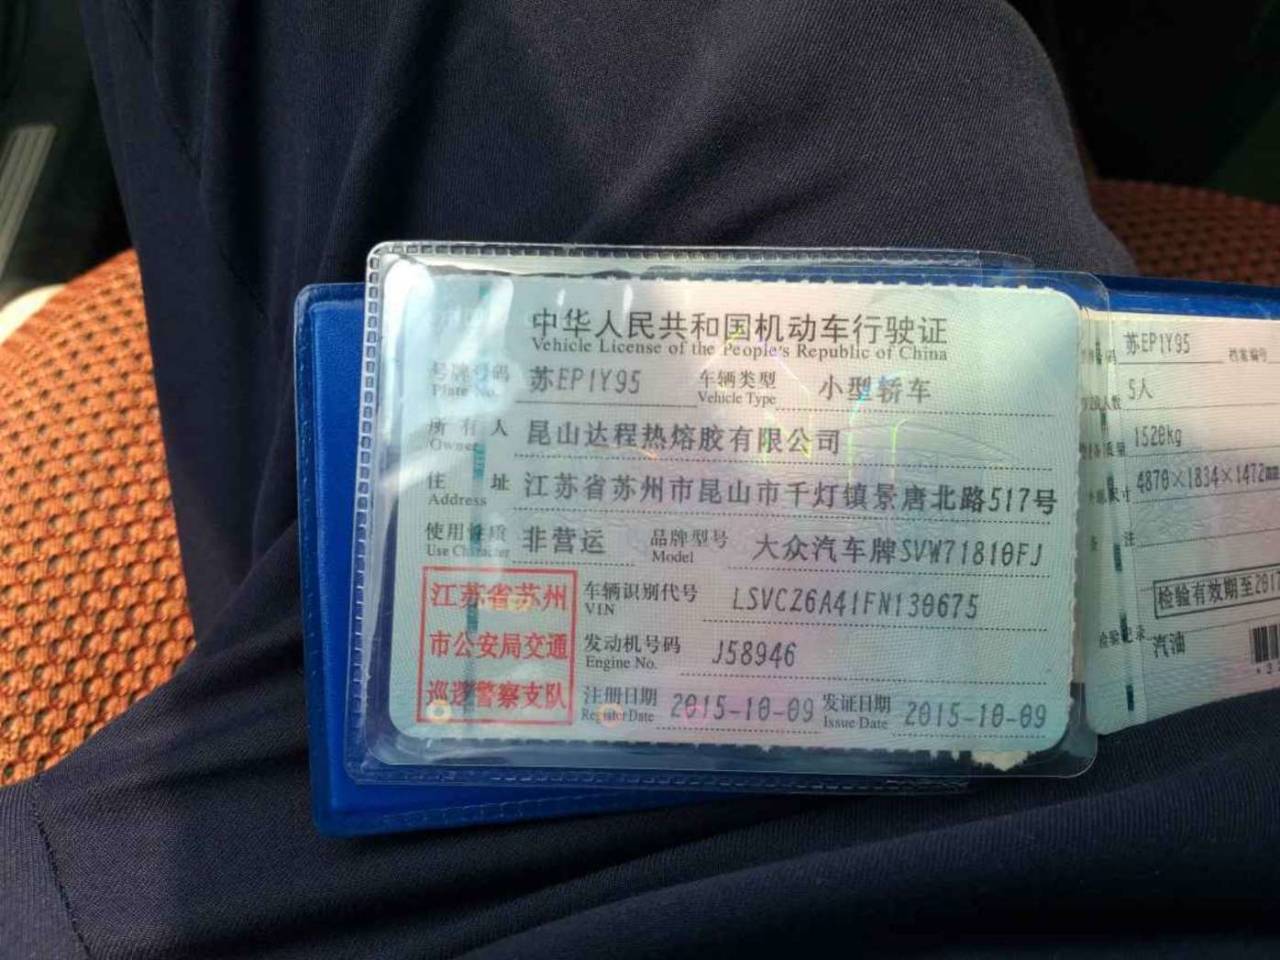 中华人民共和国机动车行驶证
Vehicle License of the People's Republic of China
号牌号码 苏EP1Y95 车辆类型 小型轿车
Plate No. Vehicle Type
所有人 昆山达程热熔胶有限公司
Owner
住址 江苏省苏州市昆山市千灯镇景唐北路517号
Address
使用性质 非营运 品牌型号 大众汽车牌SVW71810FJ
Use Character Model
江苏省苏州
市公安局交通
巡逻警察支队
车辆识别代号 LSVCZ6A41FN130675
VIN
发动机号码 J58946
Engine No.
注册日期 2015-10-09 发证日期 2015-10-09
Register Date Issue Date
苏EP1Y95 档案编号
人数 5人
质量 1520kg
尺寸 4870×1834×1472mm
注
检验有效期至201
检验记录 汽油